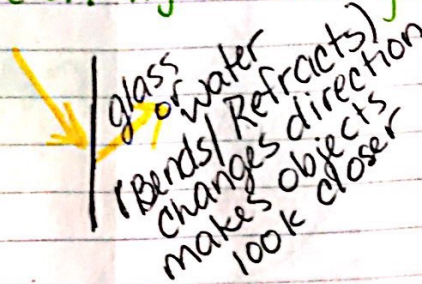 glass
or water
(Bends/Refracts)
changes direction
makes objects
look closer